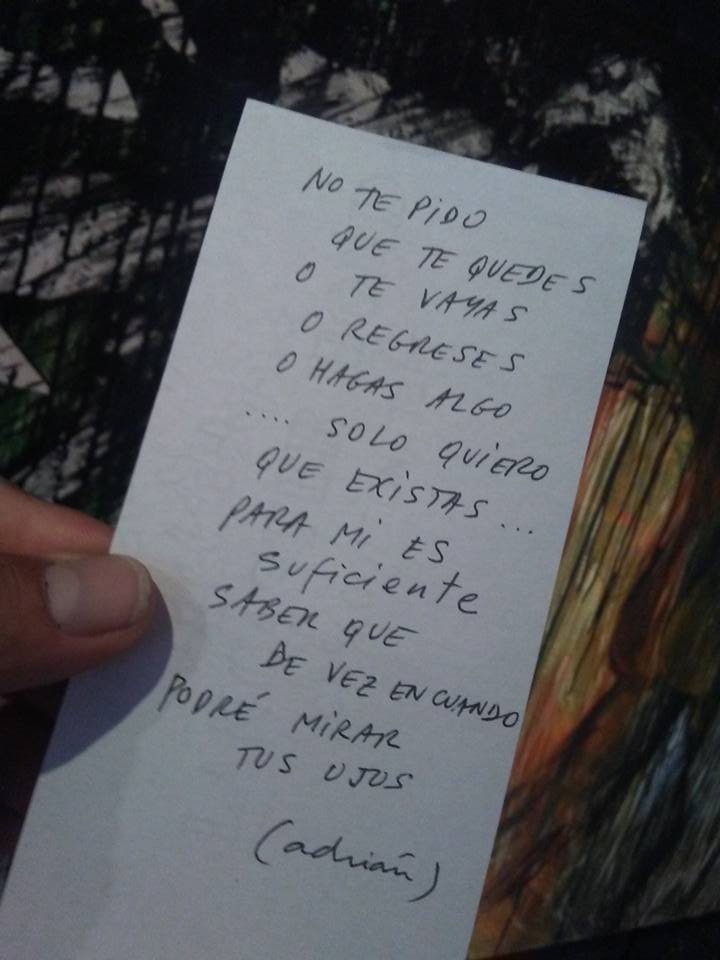 NO TE PiDO
QUE TE QUEDES
O TE VAYAS
O REGRESES
O HAGAS ALGO
.... SOLO QUiERO
QUE EXiSTAS...
PARA Mi ES
suficiente
SABER QUE
DE VEZ EN CUANDO
PODRÉ MiRAR
TUS OJOS
(adrián)